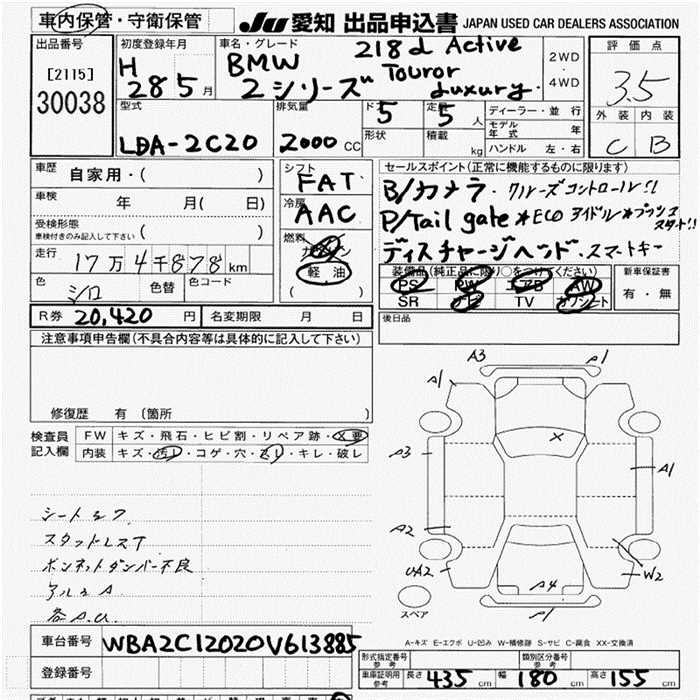 車内保管・守衛保管
JU 愛知 出品申込書 JAPAN USED CAR DEALERS ASSOCIATION
出品番号
[2115]
30038
初度登録年月
H
28 5 月
車名・グレード
BMW 218d Active
2シリーズ Touror Luxury.
2WD
・
4WD
評価点
3.5
外装 内装
C B
型式
LDA-2C20
排気量
2000 CC
ドア
5
形状
定員
5 人
積載
kg
ディーラー・並行
モデル年式 年
ハンドル 左・右
車歴
自家用・( )
車検 年 月( 日)
受検形態
車検付きのみ記入して下さい ( )
走行 17万4千878 km
色 シロ 色替 色コード
シフト
FAT
冷房
AAC
燃料
ガソリン
軽油
( )
セールスポイント(正常に機能するものに限ります)
B/カメラ・クルーズコントロール!!
P/Tail gate *ECO アイドル*
ディスチャージヘッド・スマートキー
装備品(純正品に限り○をつけてください)
PS PW エアB AW
SR ナビ TV カワシート
新車保証書
有・無
R券 20,420 円 名変期限 月 日
後日品
注意事項申告欄(不具合内容等は具体的に記入して下さい)
修復歴 有 (箇所 )
検査員
記入欄
FW キズ・飛石・ヒビ割・リペア跡・X要
内装 キズ・汚れ・コゲ・穴・スレ・キレ・破レ
スタッドレスT
ボンネットダンパー不良
アルミA
各A.U.
A3 A1
A1
A3 X A1
A2
UA2 A4 W2
A1
スペア
A-キズ E-エクボ U-凹み W-補修跡 S-サビ C-腐食 XX-交換済
車台番号 WBA2C12020V613885
登録番号
形式指定番号
参考
類別区分番号
参考
車庫証明用
参考
長さ 435 cm 幅 180 cm 高さ 155 cm